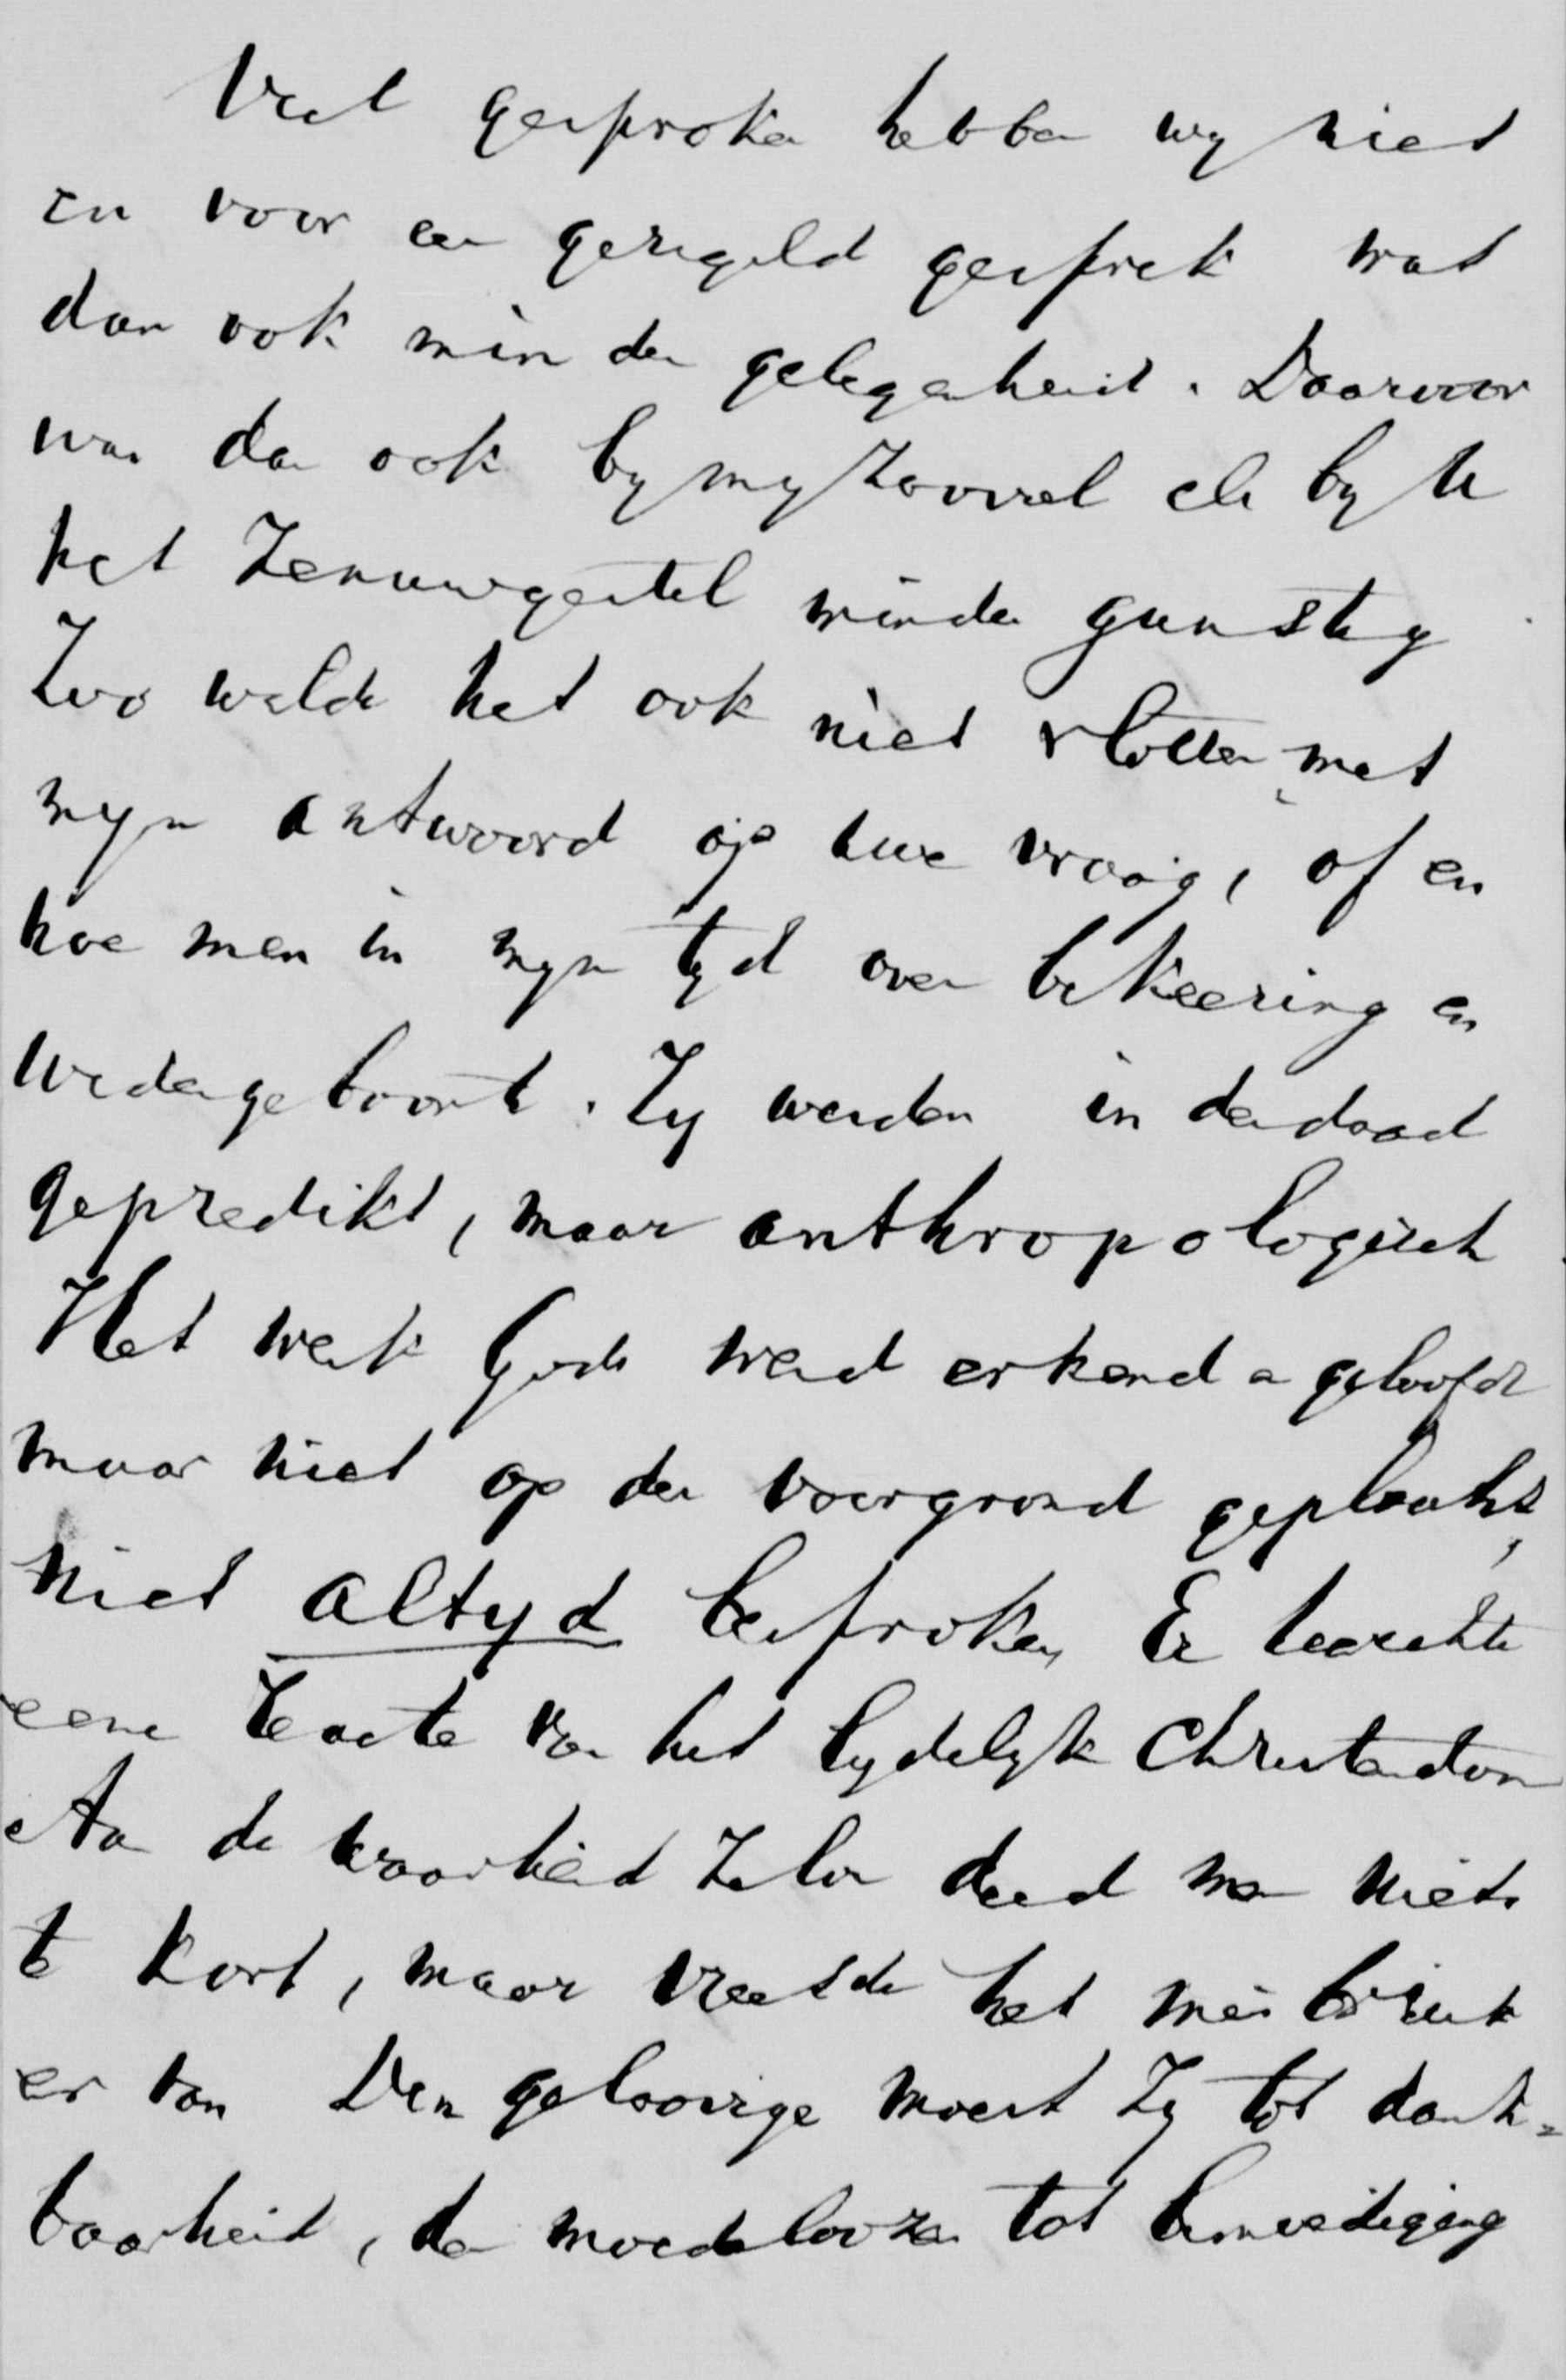 Veel gesproken hebben wy niet
en voor een geregeld gesprek was
dan ook min de gelegenheid. Daarvoor
was dan ook by my zoowel als by U
het zenuwgestel minder gunstig
Zoo wilde het ook niet vlotten met
myn antwoord op uwe vraag, of en
hoe men in myn tyd over bekeering en
wedergeboorte. Zy werden in derdaad
gepredikt, maar anthropologisch
Het werk Gods werd erkend en geloofd
maar niet op den voorgrond geplaatst,
niet altyd besproken Er heerschte
eene reactie van het lydelyk Christendom
Aan de waarheid zelve deed men niets
te kort, maar vreesde het misbruik
er van Den geloovige moest zy tot dank=
baarheid, den moedeloozen tot bemoediging